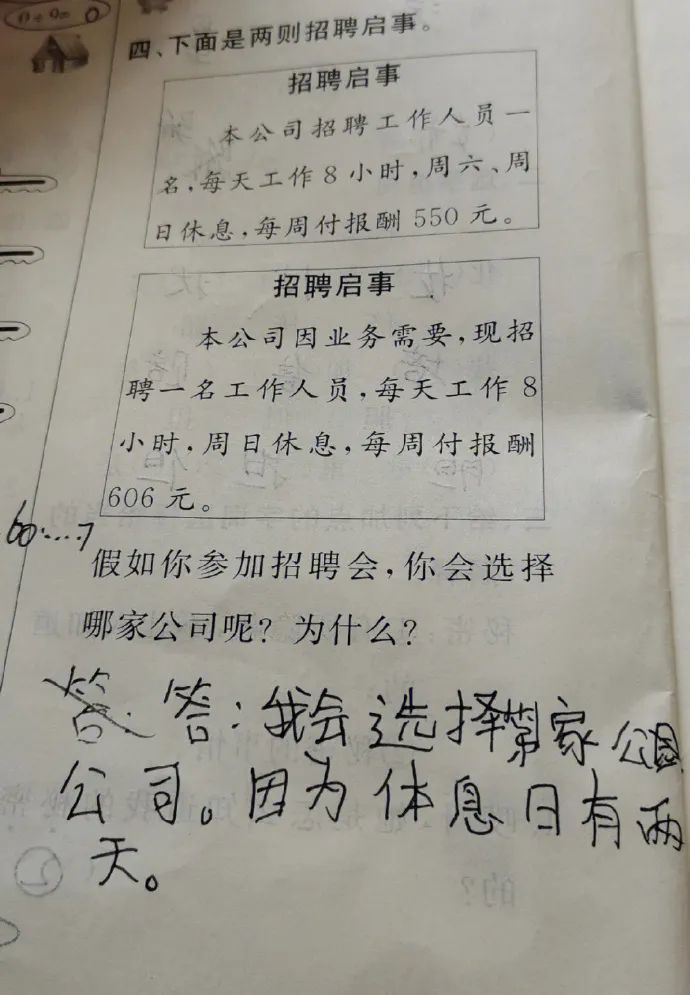 四、下面是两则招聘启事。
招聘启事
本公司招聘工作人员一
名,每天工作8小时,周六、周
日休息,每周付报酬550元。
招聘启事
本公司因业务需要,现招
聘一名工作人员,每天工作8
小时,周日休息,每周付报酬
606元。
60……7
假如你参加招聘会,你会选择
哪家公司呢?为什么?
答:我会选择第家公
公司。因为休息日有两
天。
2